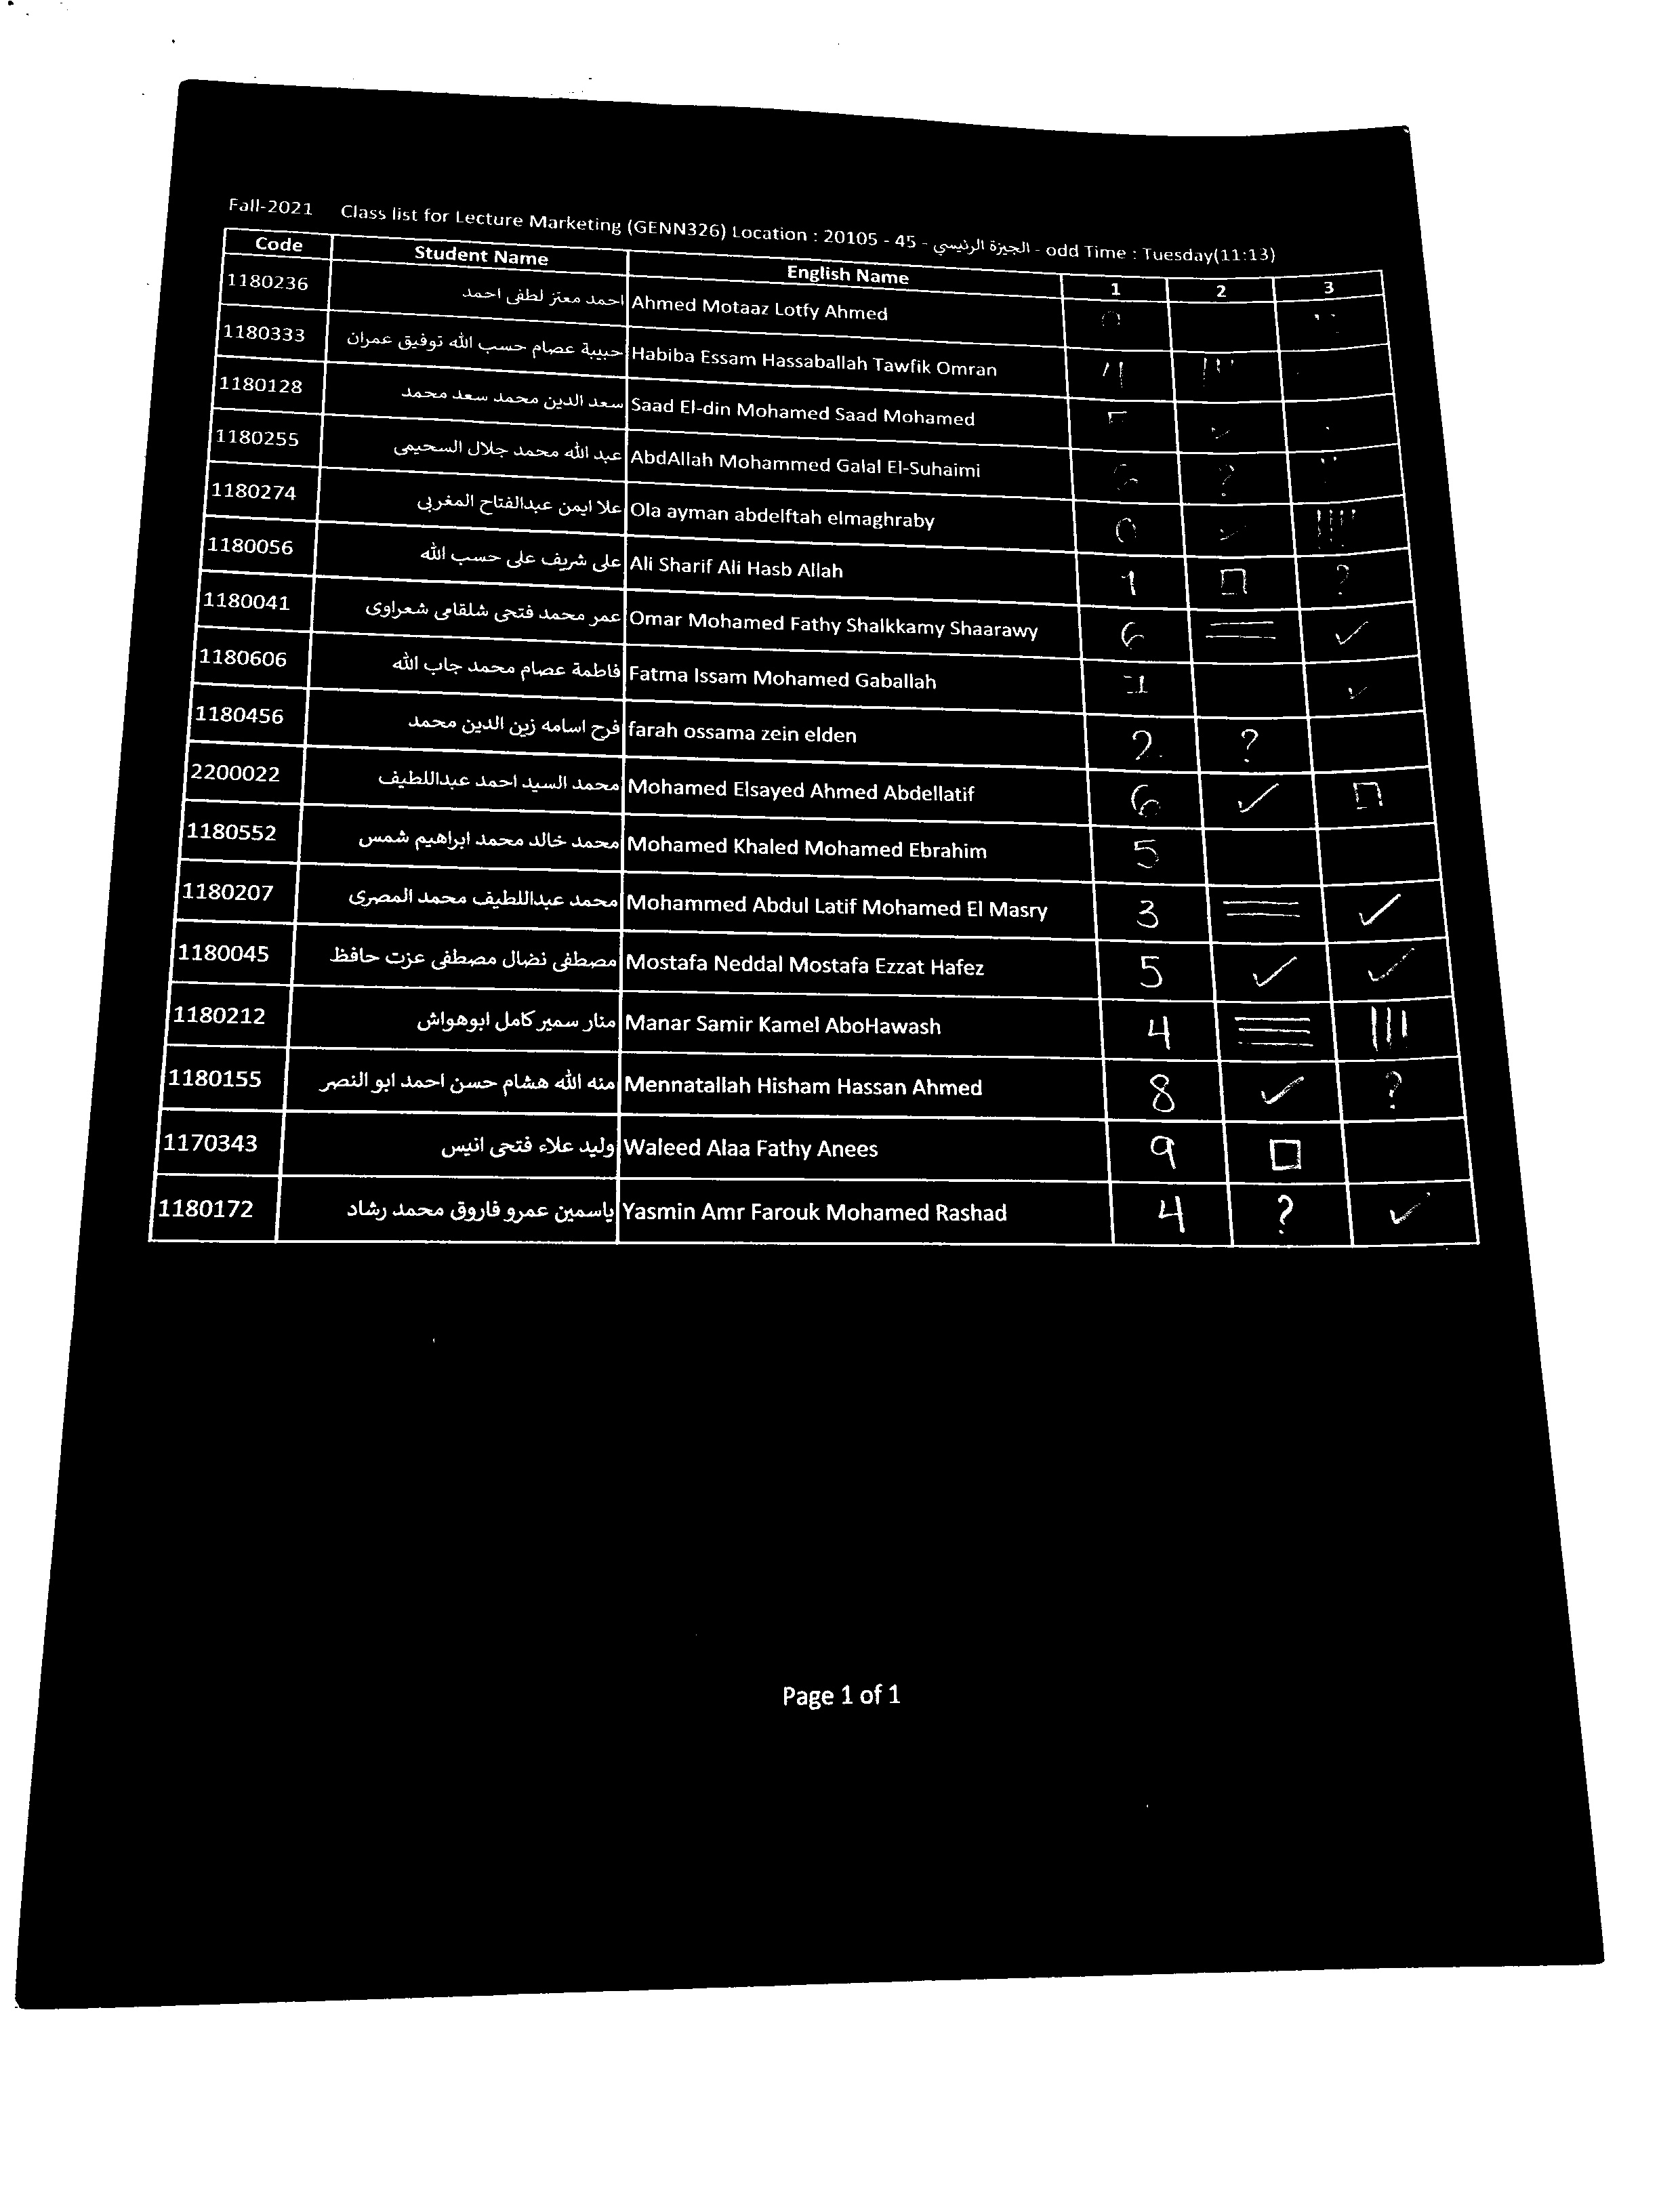 Fall-2021 Class list for Lecture Marketing (GENN326) Location : 20105 - 45 - الجيزة الرئيسي - odd Time : Tuesday(11:13)
Code Student Name English Name 1 2 3
1180236 احمد معتز لطفى احمد Ahmed Motaaz Lotfy Ahmed
1180333 حبيبة عصام حسب الله توفيق عمران Habiba Essam Hassaballah Tawfik Omran
1180128 سعد الدين محمد سعد محمد Saad El-din Mohamed Saad Mohamed ✓
1180255 عبد الله محمد جلال السحيمى AbdAllah Mohammed Galal El-Suhaimi ?
1180274 علا ايمن عبدالفتاح المغربى Ola ayman abdelftah elmaghraby 0 ✓
1180056 على شريف على حسب الله Ali Sharif Ali Hasb Allah 1 □ ?
1180041 عمر محمد فتحى شلقامى شعراوى Omar Mohamed Fathy Shalkkamy Shaarawy 6 = ✓
1180606 فاطمة عصام محمد جاب الله Fatma Issam Mohamed Gaballah ✓
1180456 فرح اسامه زين الدين محمد farah ossama zein elden 2 ?
2200022 محمد السيد احمد عبداللطيف Mohamed Elsayed Ahmed Abdellatif 6 ✓ □
1180552 محمد خالد محمد ابراهيم شمس Mohamed Khaled Mohamed Ebrahim 5
1180207 محمد عبداللطيف محمد المصرى Mohammed Abdul Latif Mohamed El Masry 3 = ✓
1180045 مصطفى نضال مصطفى عزت حافظ Mostafa Neddal Mostafa Ezzat Hafez 5 ✓ ✓
1180212 منار سمير كامل ابوهواش Manar Samir Kamel AboHawash 4 ≡ |||
1180155 منه الله هشام حسن احمد ابو النصر Mennatallah Hisham Hassan Ahmed 8 ✓ ?
1170343 وليد علاء فتحى انيس Waleed Alaa Fathy Anees 9 □
1180172 ياسمين عمرو فاروق محمد رشاد Yasmin Amr Farouk Mohamed Rashad 4 ? ✓
Page 1 of 1